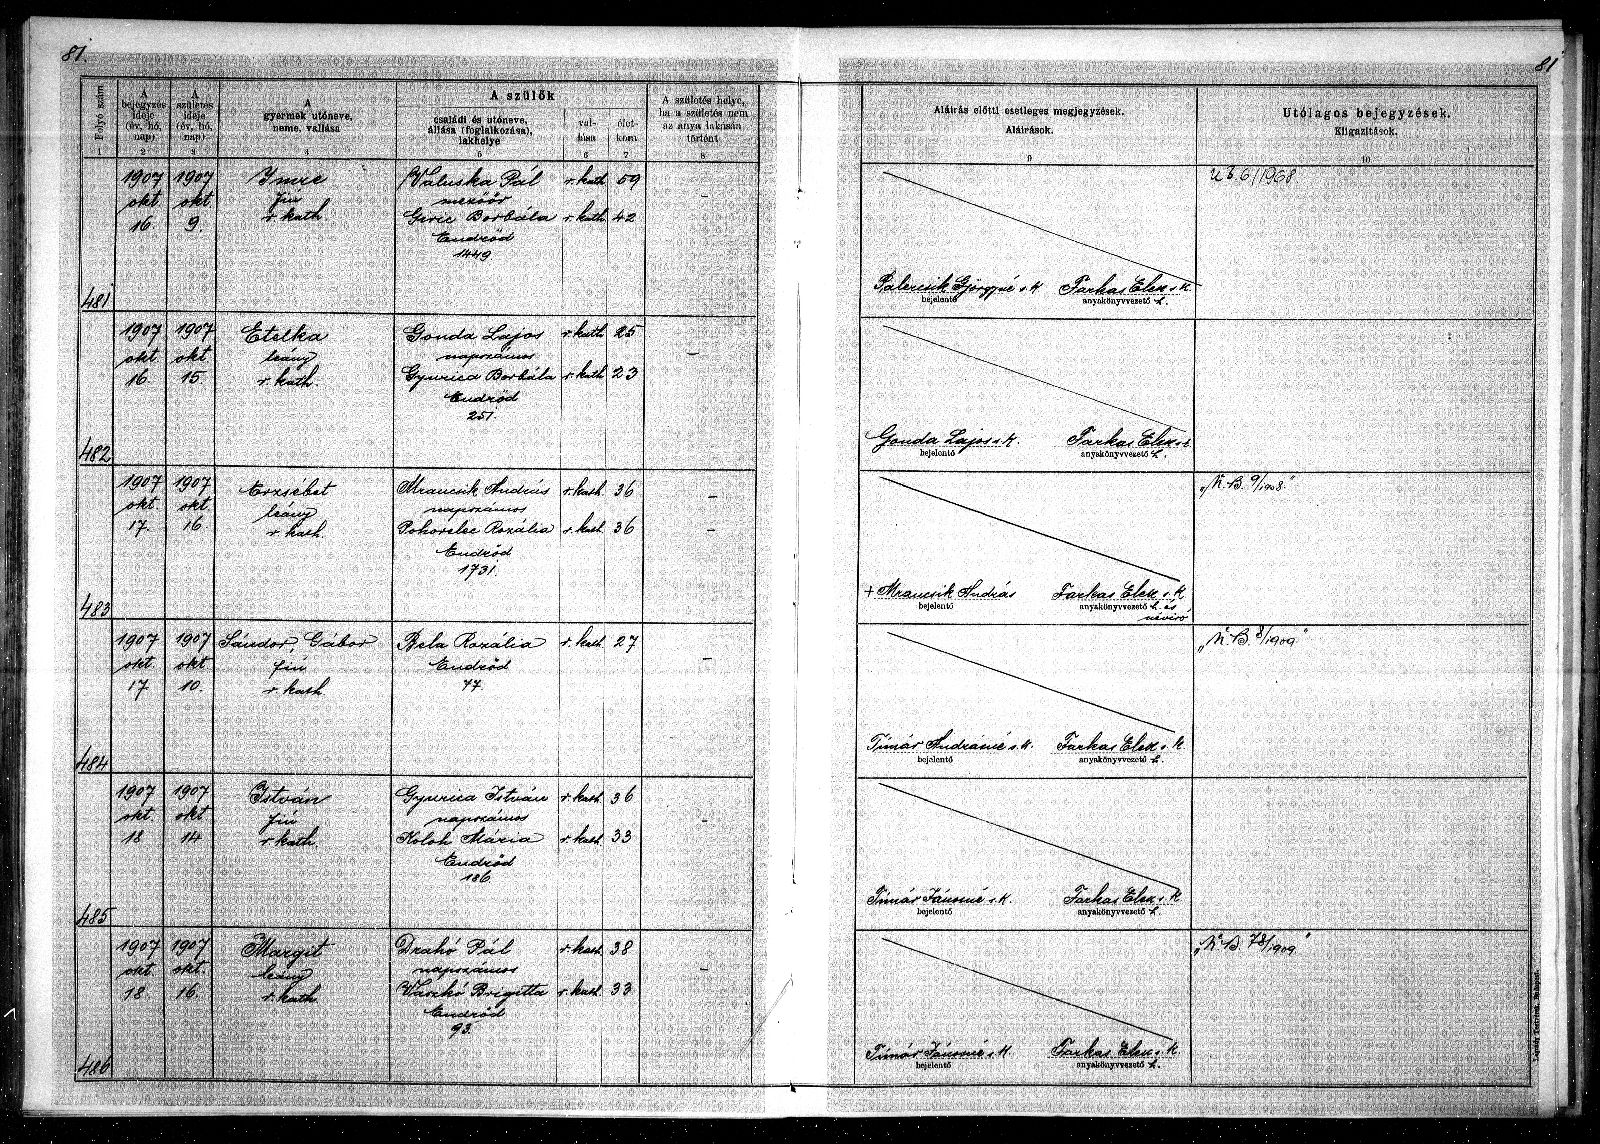 81.
81
Folyó szám
1
A bejegyzés ideje (év, hó, nap)
2
A születés ideje (év, hó, nap)
3
A gyermek utóneve, neme, vallása
4
A szülők
családi és utóneve, állása (foglalkozása), lakhelye
5
vallása
6
életkora
7
A születés helye, ha a születés nem az anya lakásán történt
8
Aláírás előtti esetleges megjegyzések.
Aláírások.
9
Utólagos bejegyzések.
Kiigazítások.
10
481
1907 okt 16.
1907 okt 9.
Imre
fiú
r. kath
Valuska Pál r. kath 59
mezőőr
Giric Borbála r. kath. 42
Endrőd
1449
–
Farkas Elek s. k.
bejelentő
anyakönyvvezető h.
6/1968
482
1907 okt 16.
1907 okt 15.
Etelka
leány
r. kath.
Gonda Lajos r. kath 25
napszámos
Gyurica Borbála r. kath 23
Endrőd
251.
–
Gonda Lajos s. k. Farkas Elek s. k.
bejelentő
anyakönyvvezető h.
483
1907 okt. 17.
1907 okt. 16
Erzsébet
leány
r. kath.
Mrancsik András r. kath. 36
napszámos
Pohorelec Rozália r. kath 36
Endrőd
1731.
–
+ Mrancsik András Farkas Elek s. k.
bejelentő
anyakönyvvezető h. és
névíró
„N. B. 9/1908.”
484
1907 okt 17.
1907 okt 10.
Sándor, Gábor
fiú
r. kath.
Bela Rozália r. kath. 27
Endrőd
77.
–
Tímár Andrásné s. k. Farkas Elek s. k.
bejelentő
anyakönyvvezető h.
„N. B. 8/1909”
485
1907 okt. 18
1907 okt 14
István
fiú
r. kath.
Gyurica István r. kath. 36
napszámos
Koloh Mária r. kath. 33
Endrőd
186.
–
Tímár Jánosné s. k. Farkas Elek s. k.
bejelentő
anyakönyvvezető h.
486
1907 okt. 18.
1907 okt. 16.
Margit
leány
r. kath
Drahó Pál r. kath. 38
napszámos
Vaszkó Brigitta r. kath. 33
Endrőd
93.
–
Tímár Jánosné s. k. Farkas Elek s. k.
bejelentő
anyakönyvvezető h.
„N. B. 78/1909”